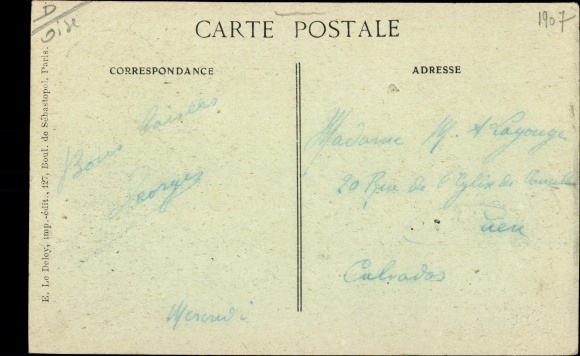 D
Oise
1907
CARTE POSTALE
CORRESPONDANCE
ADRESSE
E. Le Deley, imp.-édit., 127, Boul. de Sébastopol, Paris.
Bons baisers
Georges
Mercredi
Madame M. A
20 Rue de l'Eglise de
Caen
Calvados